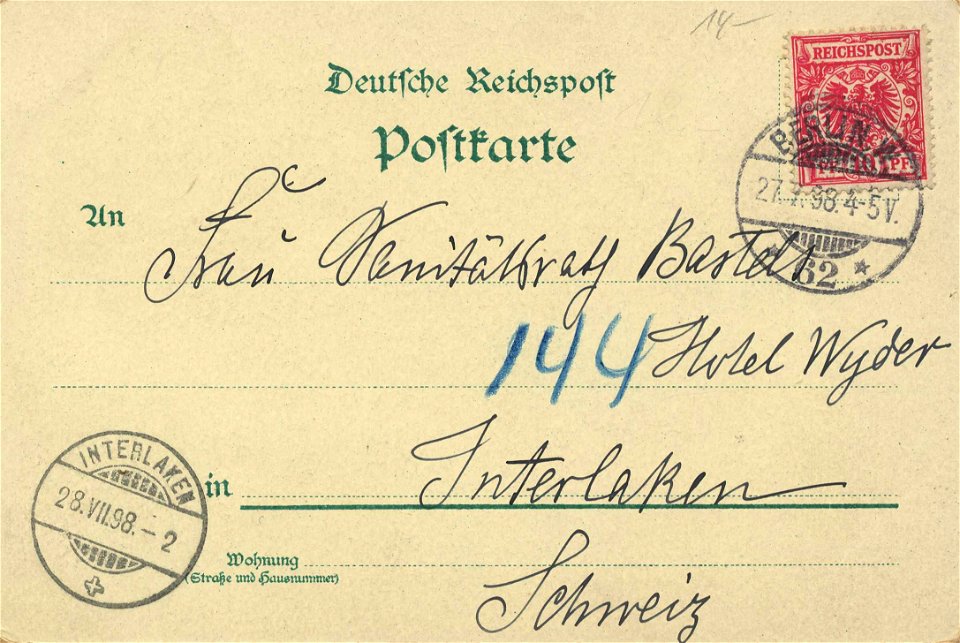 14-
REICHSPOST
Deutsche Reichspost
Postkarte
BERLIN W.
10 PF
27.7.98.4-5V.
62
An Frau Sanitätsrath Bartels
144 Hotel Wyder
in Interlaken
Schweiz
INTERLAKEN
28.VII.98.-2
Wohnung
(Straße und Hausnummer)